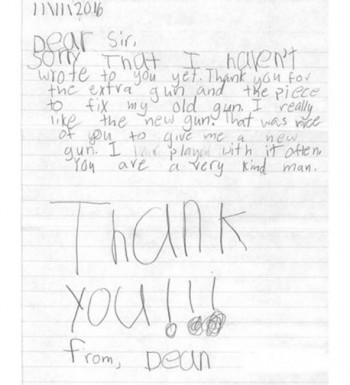 11/11/2016
Dear Sir,
Sorry That I haven't
wrote to you yet. Thank you for
the extra gun and the piece
to fix my old gun. I really
like the new gun. That was nice
of you to give me a new
gun. I play with it often.
You are a very kind man.
Thank
you!!!
from, Dean